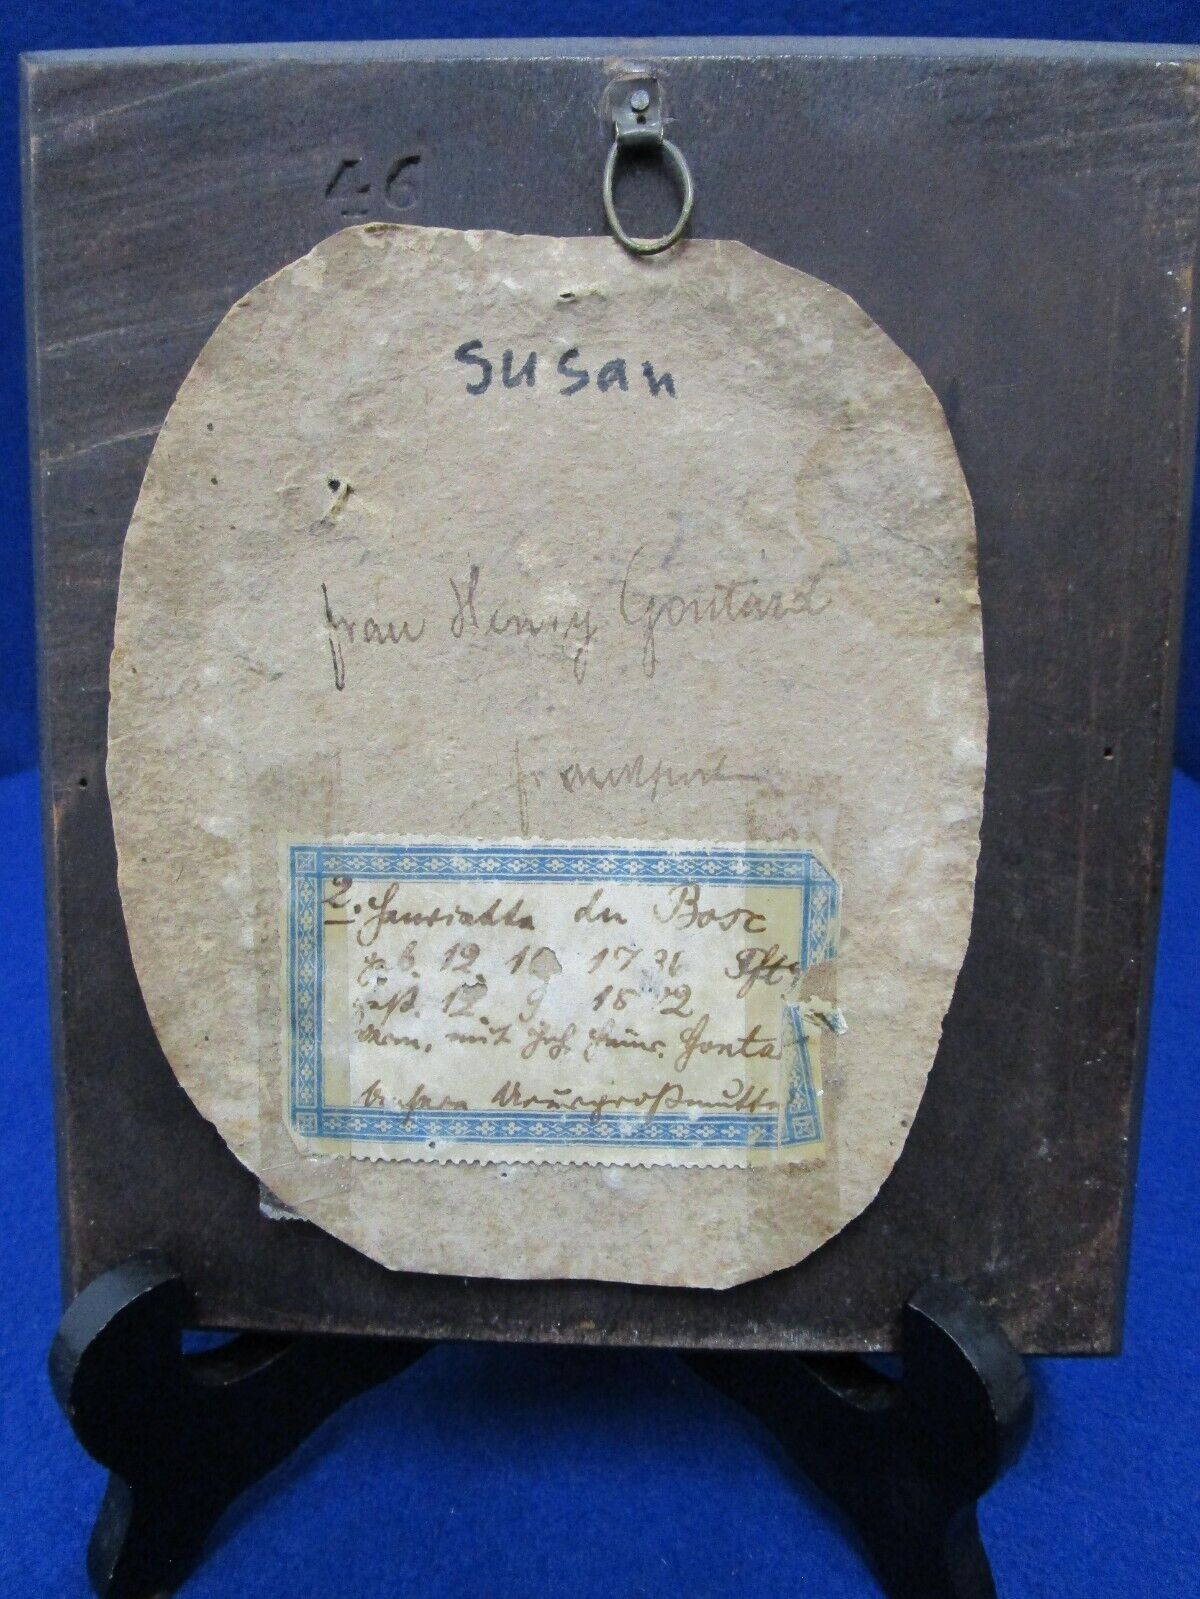 46
Susan
Frau Henry Gontard
Frankfurt
2. Henriette du Bosc
geb. 12. 1736
gest. 12. 9 18 2
verm. mit Gonta
Unsere Ururgroßmutte